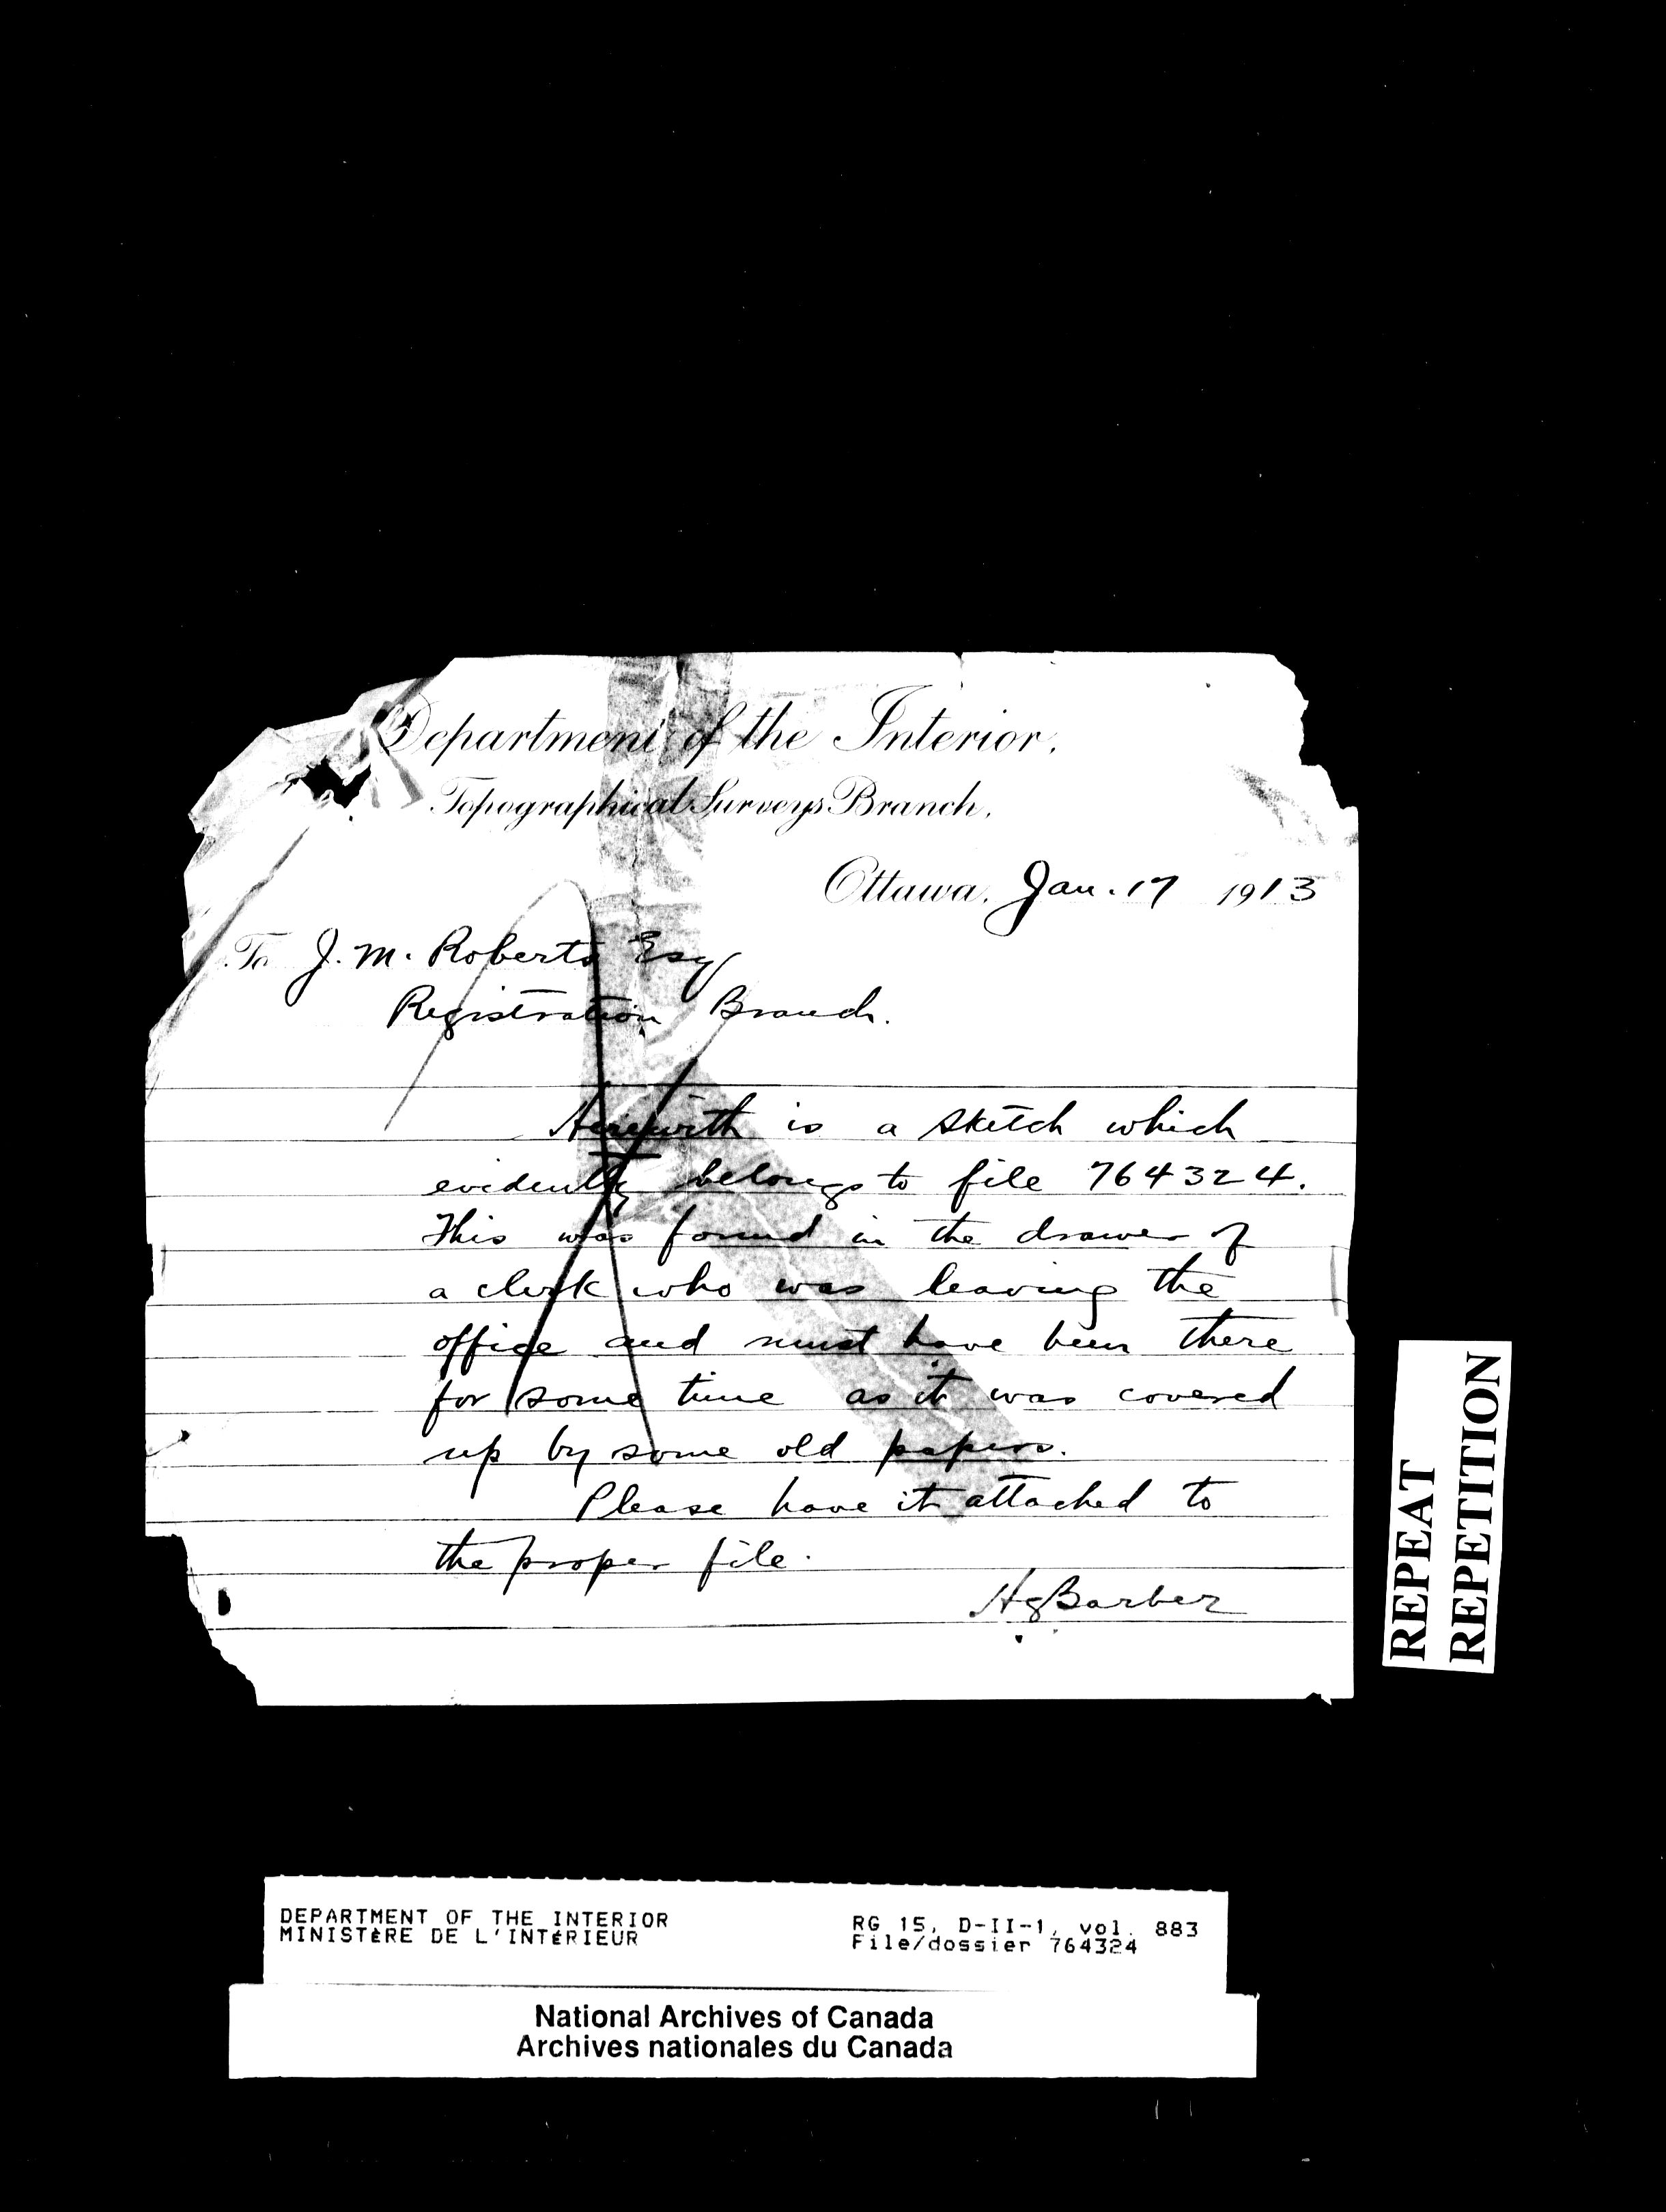 Department of the Interior,
Topographical Surveys Branch,
Ottawa, Jan. 17 1913
To J. M. Roberts Esq
Registration Branch.
Herewith is a sketch which
evidently belongs to file 764324.
This was found in the drawer of
a clerk who was leaving the
office and must have been there
for some time as it was covered
up by some old papers.
Please have it attached to
the proper file.
HgBarber
REPEAT
REPETITION
DEPARTMENT OF THE INTERIOR
MINISTÈRE DE L'INTÉRIEUR
RG 15, D-II-1, vol. 883
File/dossier 764324
National Archives of Canada
Archives nationales du Canada